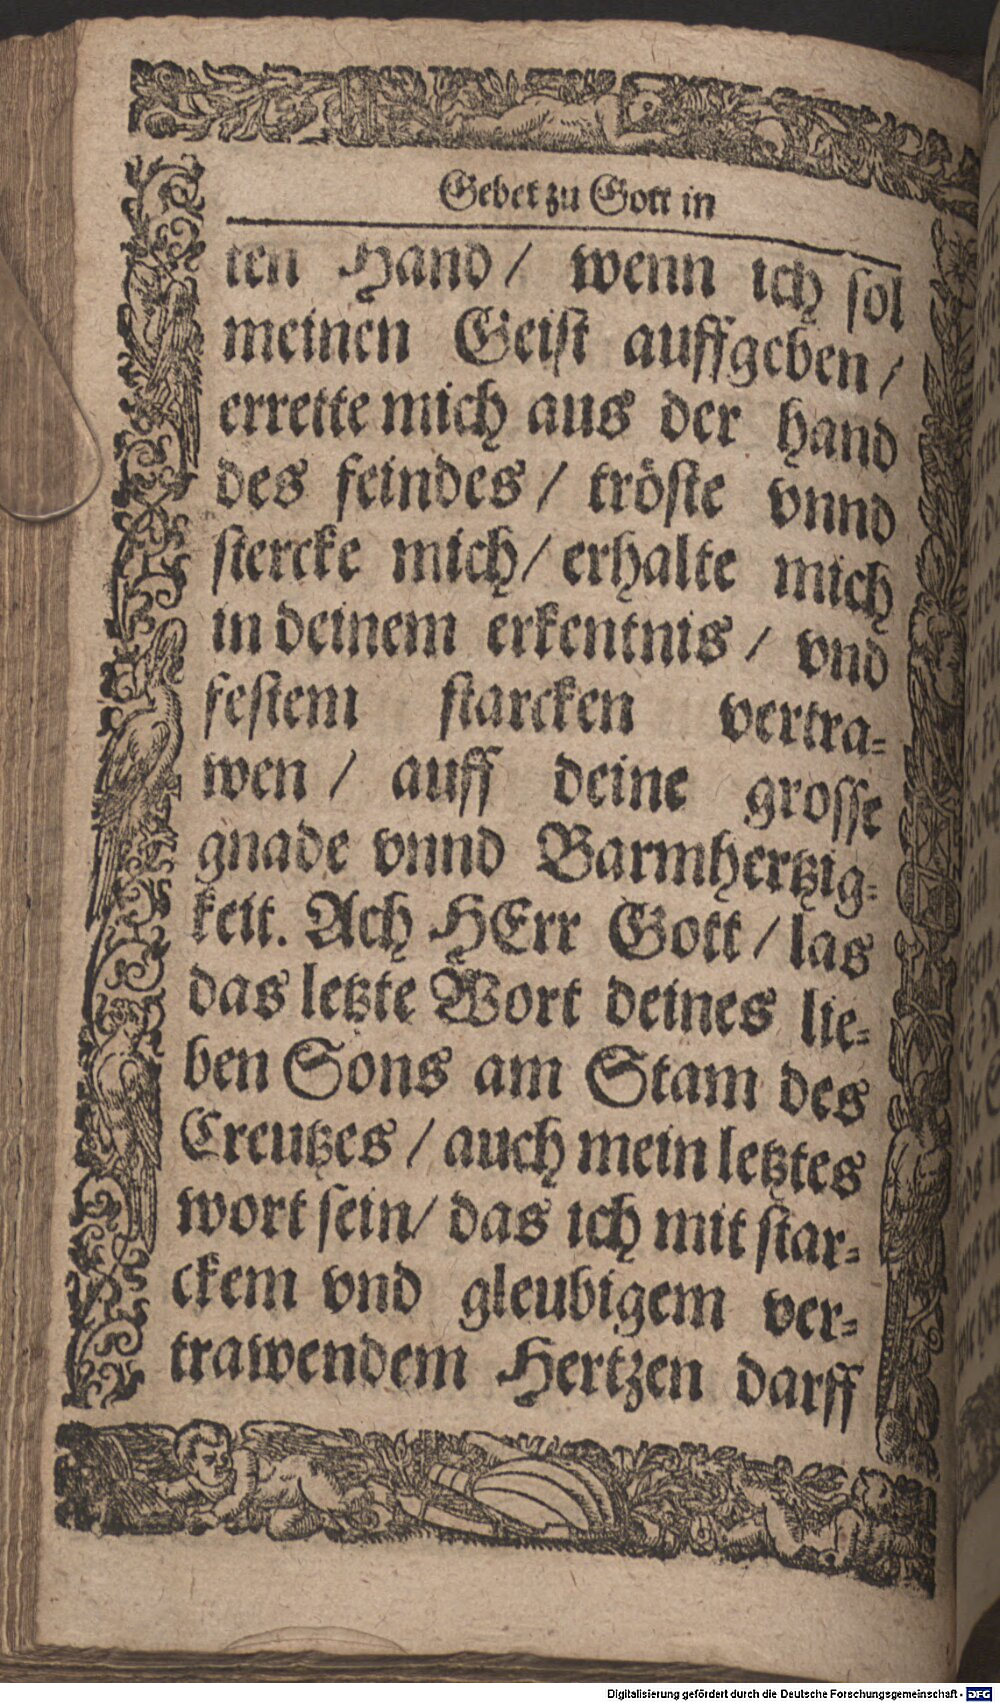 Gebet zu Gott in
ten Hand / wenn ich sol
meinen Geist auffgeben /
errette mich aus der hand
des feindes / tröste vnnd
stercke mich / erhalte mich
in deinem erkentnis / vnd
festem starcken vertra-
wen / auff deine grosse
gnade vnnd Barmhertzig-
keit. Ach HErr Gott / las
das letzte Wort deines lie-
ben Sons am Stam des
Creutzes / auch mein letztes
wort sein / das ich mit star-
ckem vnd gleubigem ver-
trawendem Hertzen darff
Digitalisierung gefördert durch die Deutsche Forschungsgemeinschaft - DFG